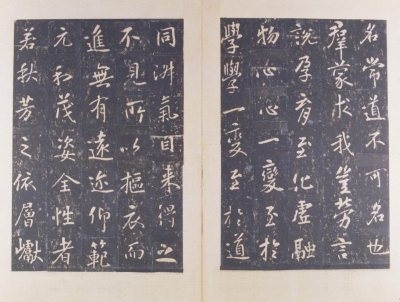 名常道不可名也
羣蒙求我豈勞言
說孕育至化虛融
物心心一變至於
學學一變至於道
同淑氣自來得之
不見所以摳衣而
進無有遠迩仰範
元和茂姿全性者
若秋芳之依層巘